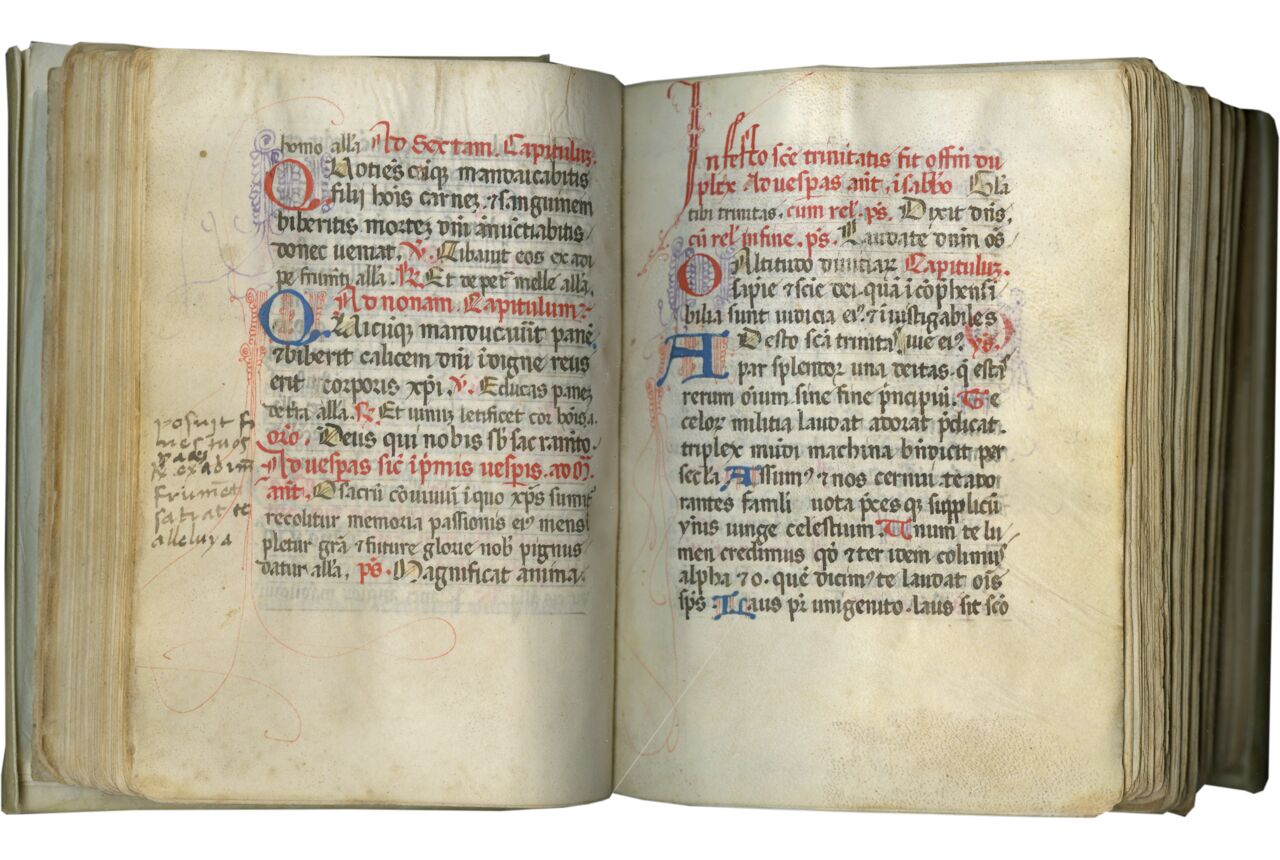 homo alla Ad Sextam. Capitulum.
Quotiescunque manducabitis
filij hois carnem. et sanguinem
biberitis mortem dni anuctiabitis
donec ueniat. V. Cibauit eos ex adi
pe frumti alla. R. Et de pet melle alla.
Ad nonam. Capitulum.
Quicuique manducauit pane
et biberit calicem dni idigne reus
erit corporis xpi. V. Educas panez
de tra alla. R. Et uinuz letificet cor hois a.
oro. Deus qui nobis sb sacramto.
Ad uespas sic ipmis uespis. ad M.
ant. O sacru couiuiu i quo xps sumit
recolitur memoria passionis ei mens
pletur gra et future glorie nob pignus
datur alla. ps. Magnificat anima.
posuit fi
nes tuos
paces
R. ex adipe
frument
satiat te
alleluya
In festo sce trinitatis fit offm du
plex Ad uespas ant. i sabbo Gla
tibi trinitas. cum rel. ps. Dixit dns.
cu rel in fine. ps. Laudate dnm os
O Altitudo diuitiarz Capituluz.
sapie et scie dei. qua icophensi
bilia sunt iudicia ei. et iuestigabiles
Adesto sca trinitas uie ei. ys.
par splendor una deitas. q esta
rerum oium sine fine pncipiu. Te
celor militia laudat adorat pdicat.
triplex mudi machina bndicit per
secla Assum et nos cernui te ado
rantes famli uota pces q supplicu
ymis iunge celestium. Unum te lu
men credimus qd et ter idem colimus
alpha et o. que dicim te laudat ois
sps. Laus pri unigenito. laus sit sco